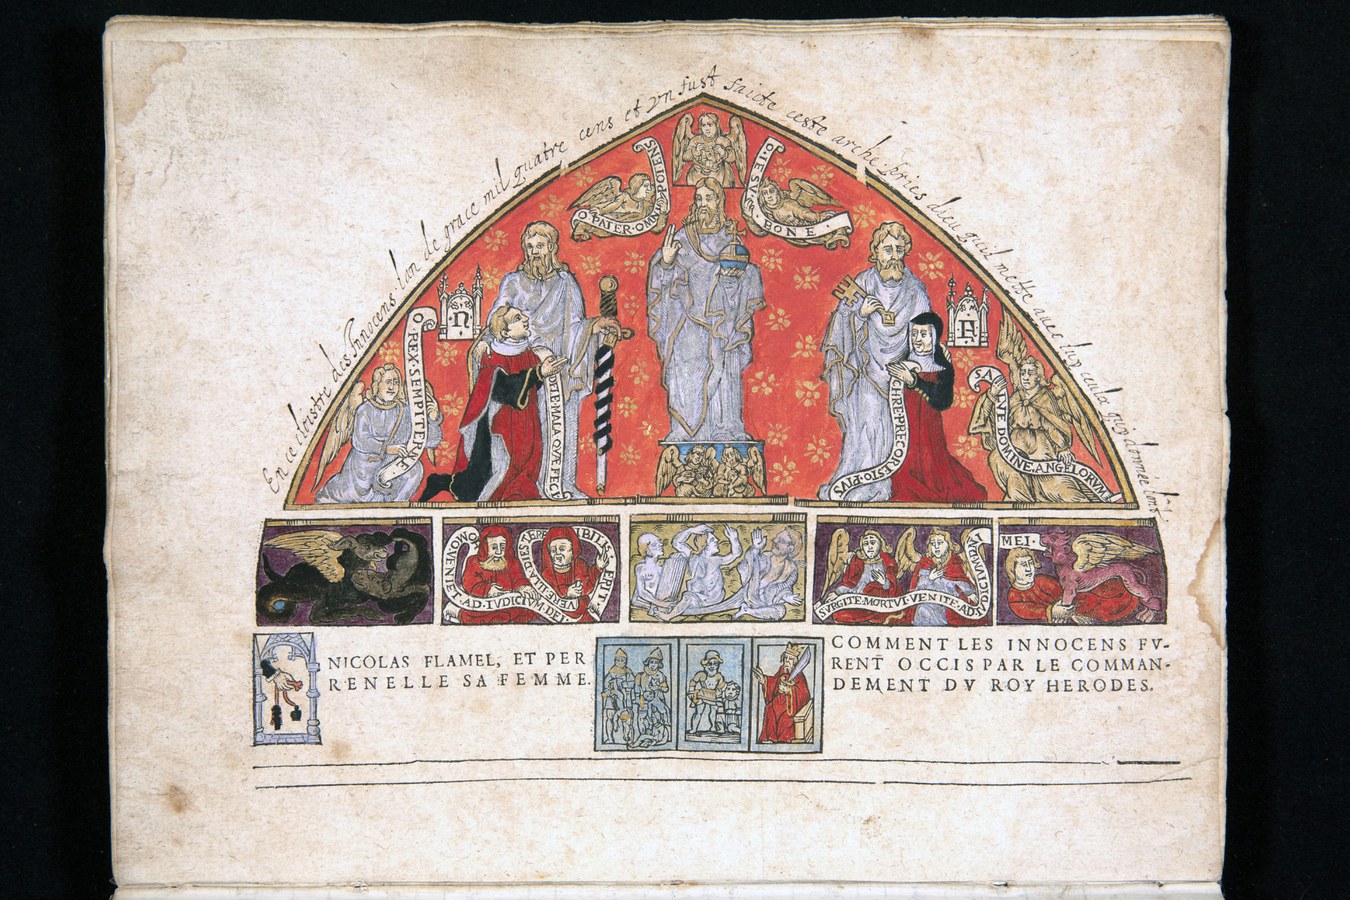 En ce cloistre des Innocens lan de grace mil quatre cens et un fust faicte ceste arche Pries dieu quil mette avec luy ceulx qui
O·PATER·OMNIPOTENS
O·IESV BONE·
·N·
F
O·REX·SEMPITERNE·
DELE·MALA·QVÆ·FECI
CHRE·PRECOR·ESTO·PIVS
SALVE DOMINE·ANGELORVM
HOMO·VENIET·AD·IVDICIVM·DEI·
VERE·ILLA·DIES·TERRIBILIS·ERIT·
SVRGITE·MORTVI·VENITE·AD·IVDICIVM
MEI·
NICOLAS FLAMEL, ET PER
RENELLE SA FEMME.
COMMENT LES INNOCENS FV-
RENT OCCIS PAR LE COMMAN-
DEMENT DV ROY HERODES.